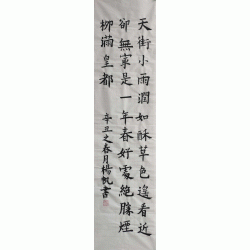 天街小雨潤如酥草色遙看近
卻無最是一年春好處絕勝煙
柳滿皇都
辛丑之春月楊帆書